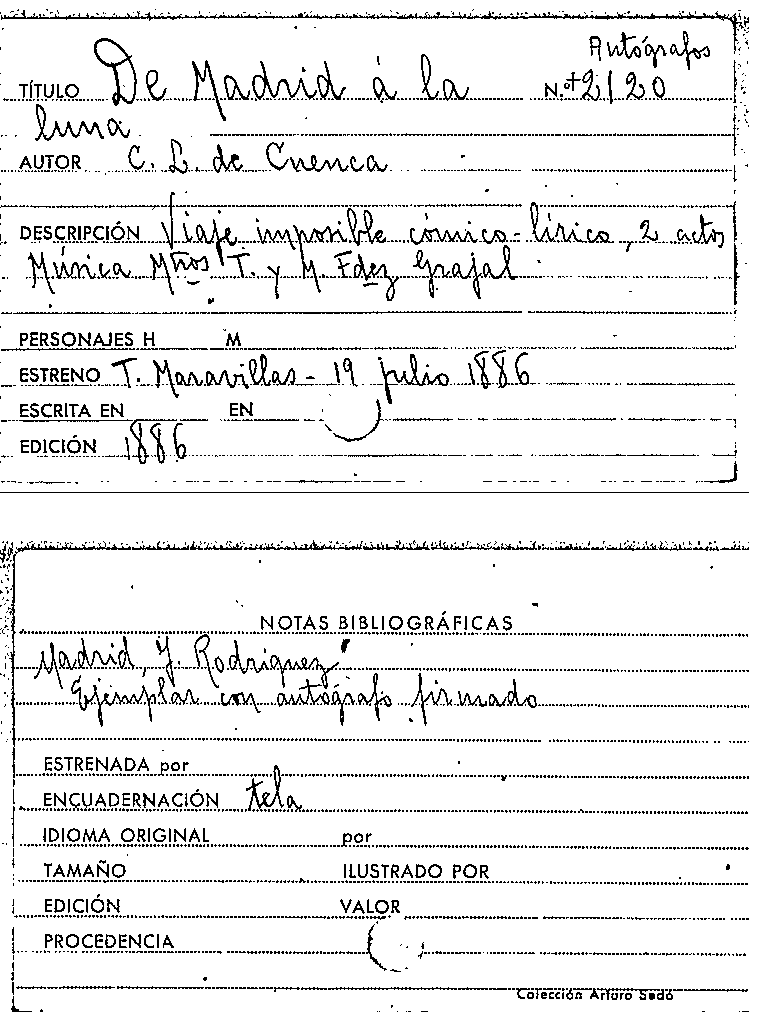 Autógrafos
TÍTULO De Madrid á la N.º+2120
luna
AUTOR C. L. de Cuenca
DESCRIPCIÓN Viaje imposible cómico-lírico, 2 actos
Música Mtros T. y M. Fdez Grajal
PERSONAJES H M
ESTRENO T. Maravillas - 19 julio 1886
ESCRITA EN EN
EDICIÓN 1886
NOTAS BIBLIOGRÁFICAS
Madrid, J. Rodríguez
Ejemplar con autógrafo firmado
ESTRENADA por
ENCUADERNACIÓN tela
IDIOMA ORIGINAL por
TAMAÑO ILUSTRADO POR
EDICIÓN VALOR
PROCEDENCIA
Colección Arturo Sedó